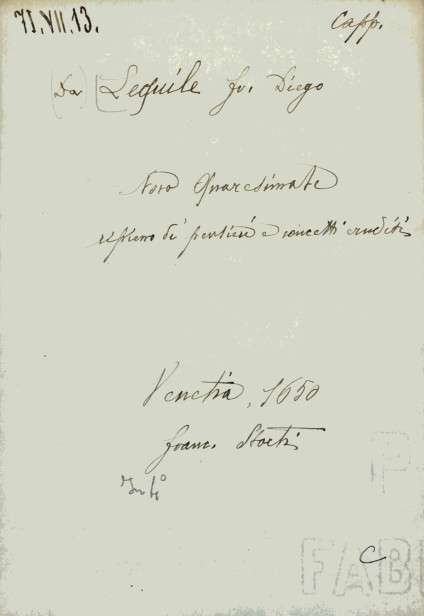 71.VII.13.
Capp.
(Da) Lequile fr. Diego
Novo Quaresimale
ripieno di pensieri e concetti eruditi
Venetia, 1650
Franc. Storti
In 4°
C
P
FAB